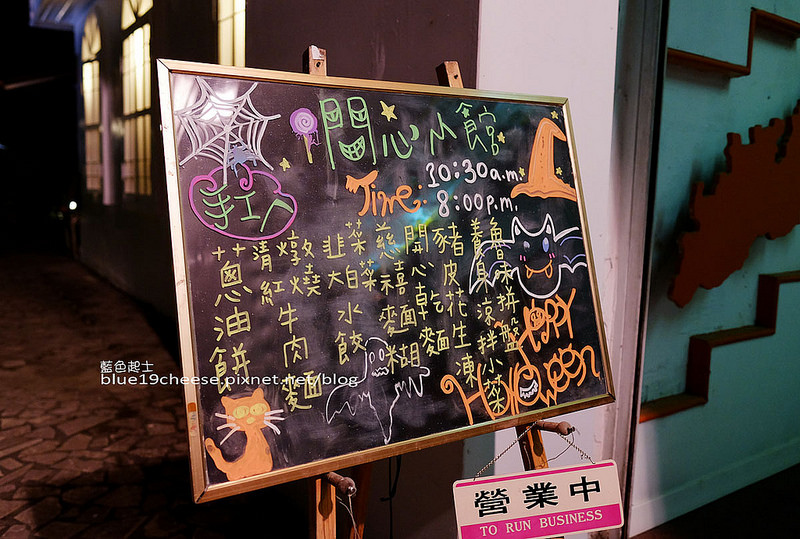 開心小館
手工ㄟ
Time: 10:30a.m.
8:00p.m.
蔥油餅
清燉
紅燒
牛肉麵
韭菜
大白菜
水餃
慈禧麵糊
開心乾麵
豬皮花生凍
養身涼拌小菜
魚味拼盤
HAPPY
Halloween
營業中
TO RUN BUSINESS
藍色起士
blue19cheese.pixnet.net/blog